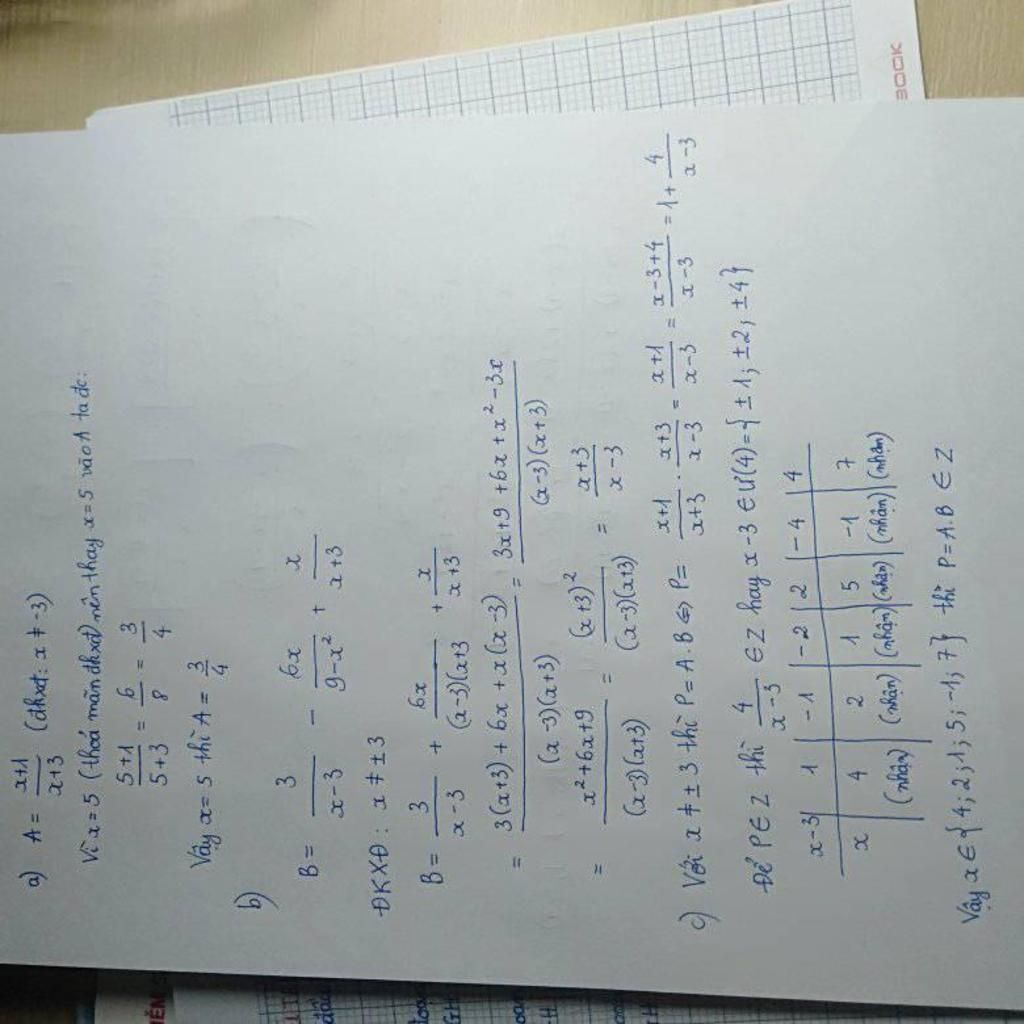 a) A = (x+1)/(x+3) (đkxđ: x ≠ -3)
Vì x=5 (thoả mãn đkxđ) nên thay x=5 vào A ta đc:
(5+1)/(5+3) = 6/8 = 3/4
Vậy x=5 thì A = 3/4
b)
B = 3/(x-3) - 6x/(9-x²) + x/(x+3)
ĐKXĐ: x ≠ ±3
B = 3/(x-3) + 6x/(x-3)(x+3 + x/(x+3)
= (3(x+3)+6x+x(x-3))/((x-3)(x+3)) = (3x+9+6x+x²-3x)/((x-3)(x+3))
= (x²+6x+9)/((x-3)(x+3)) = (x+3)²/((x-3)(x+3)) = (x+3)/(x-3)
c) Với x ≠ ±3 thì P=A.B ⇔ P= (x+1)/(x+3) . (x+3)/(x-3) = (x+1)/(x-3) = (x-3+4)/(x-3) = 1+ 4/(x-3)
Để P∈Z thì 4/(x-3) ∈Z hay x-3 ∈Ư(4)={±1; ±2; ±4}
x-3 | 1 | -1 | -2 | 2 | -4 | 4
x | 4 | 2 | 1 | 5 | -1 | 7
(nhận) | (nhận) | (nhận) | (nhận) | (nhận) | (nhận)
Vậy x∈{4; 2; 1; 5; -1; 7} thì P=A.B ∈Z
BOOK